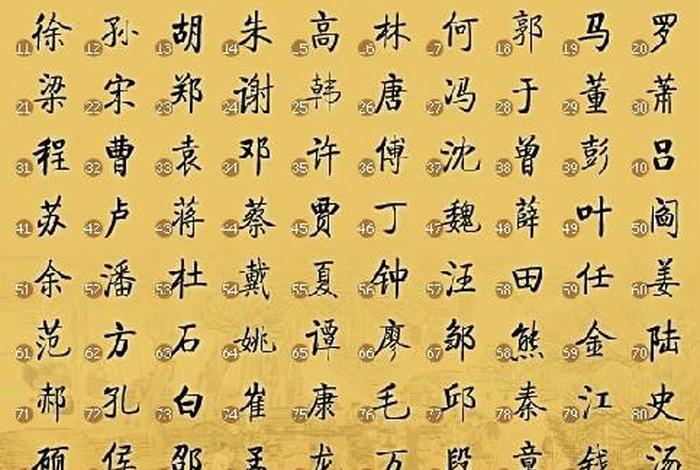 11徐 12孙 13胡 14朱 15高 16林 17何 18郭 19马 20罗
21梁 22宋 23郑 24谢 25韩 26唐 27冯 28于 29董 30萧
31程 32曹 33袁 34邓 35许 36傅 37沈 38曾 39彭 40吕
41苏 42卢 43蒋 44蔡 45贾 46丁 47魏 48薛 49叶 50阎
51余 52潘 53杜 54戴 55夏 56钟 57汪 58田 59任 60姜
61范 62方 63石 64姚 65谭 66廖 67邹 68熊 69金 70陆
71郝 72孔 73白 74崔 75康 76毛 77邱 78秦 79江 80史
侯 邵 孟 龙 万 段 章 钱 汤